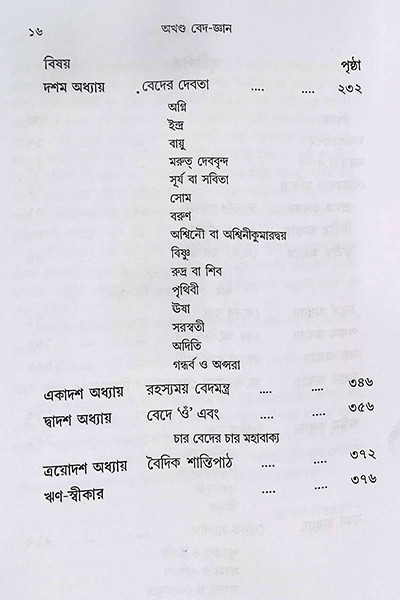 ১৬ অখণ্ড বেদ-জ্ঞান
বিষয় পৃষ্ঠা
দশম অধ্যায় বেদের দেবতা .... .... ২৩২
অগ্নি
ইন্দ্র
বায়ু
মরুত্ দেববৃন্দ
সূর্য বা সবিতা
সোম
বরুণ
অশ্বিনৌ বা অশ্বিনীকুমারদ্বয়
বিষ্ণু
রুদ্র বা শিব
পৃথিবী
ঊষা
সরস্বতী
অদিতি
গন্ধর্ব ও অপ্সরা
একাদশ অধ্যায় রহস্যময় বেদমন্ত্র .... .... ৩৪৬
দ্বাদশ অধ্যায় বেদে ‘ওঁ’ এবং .... .... ৩৫৬
চার বেদের চার মহাবাক্য
ত্রয়োদশ অধ্যায় বৈদিক শান্তিপাঠ .... .... ৩৭২
ঋণ-স্বীকার .... .... ৩৭৬